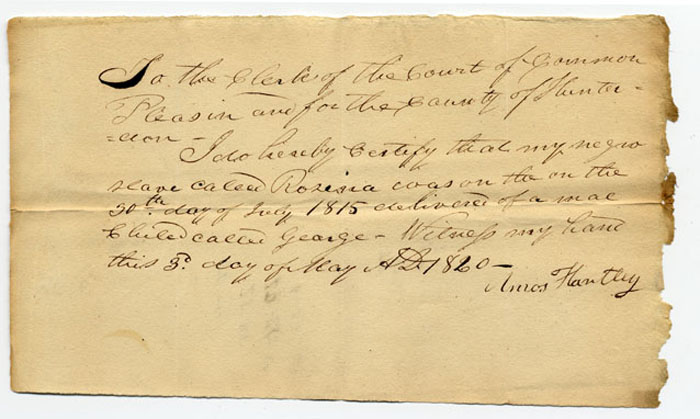 To the Clerk of the Court of Common
Pleas in and for the County of Hunter-
-don-
I do hereby Certify that my negro
slave called Rozinia was on the on the
30th day of July 1815 delivered of a mal
Child called George - Witness my hand
this 3d. day of May AD. 1820-
Amos Hartley